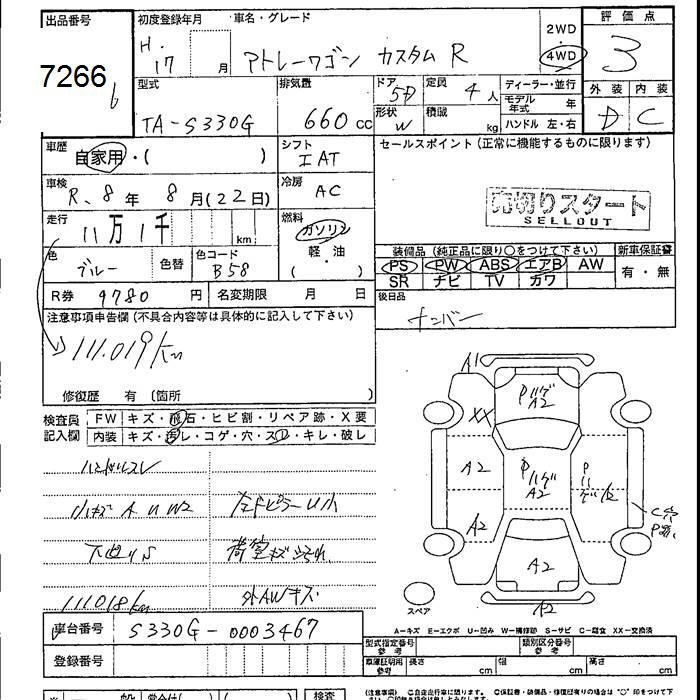 出品番号
7266
6
初度登録年月
H.17 月
車名・グレード
アトレーワゴン カスタム R
2WD
4WD
評価点
3
外装 内装
D C
型式
TA-S330G
排気量
660cc
ドア
5D
形状
W
定員
4人
積載
kg
ディーラー・並行
モデル年式 年
ハンドル 左・右
車歴
自家用・( )
シフト
IAT
車検
R.8年 8月(22日)
冷房
AC
走行
11万1千 km
燃料
ガソリン
軽・油
( )
色
ブルー
色替
色コード
B58
R券 9780円
名変期限 月 日
セールスポイント(正常に機能するものに限ります)
売切りスタート
SELLOUT
装備品(純正品に限り○をつけて下さい)
新車保証書
PS PW ABS エアB AW
SR ナビ TV カワ
有・無
後日品
ナンバー
注意事項申告欄(不具合内容等は具体的に記入して下さい)
111.019km
修復歴 有 (箇所 )
検査員記入欄
FW キズ・飛石・ヒビ割・リペア跡・X要
内装 キズ・汚レ・コゲ・穴・スレ・キレ・破レ
ハンドルスレ
小キズ A U W2
左Fピラー U小
下廻りS
荷室キズ
111018km
外AWキズ
車台番号
S330G-0003467
登録番号
A1
XX
Pハゲ
A2
A2
A2
Pハゲ
A2
Pハゲ
A2
C穴
A2
A2
スペア
A－キズ E－エクボ U－凹み W－補修跡 S－サビ C－腐食 XX－交換済
型式指定番号
参考
類別区分番号
参考
車庫証明用
参考
長さ cm
幅 cm
高さ cm